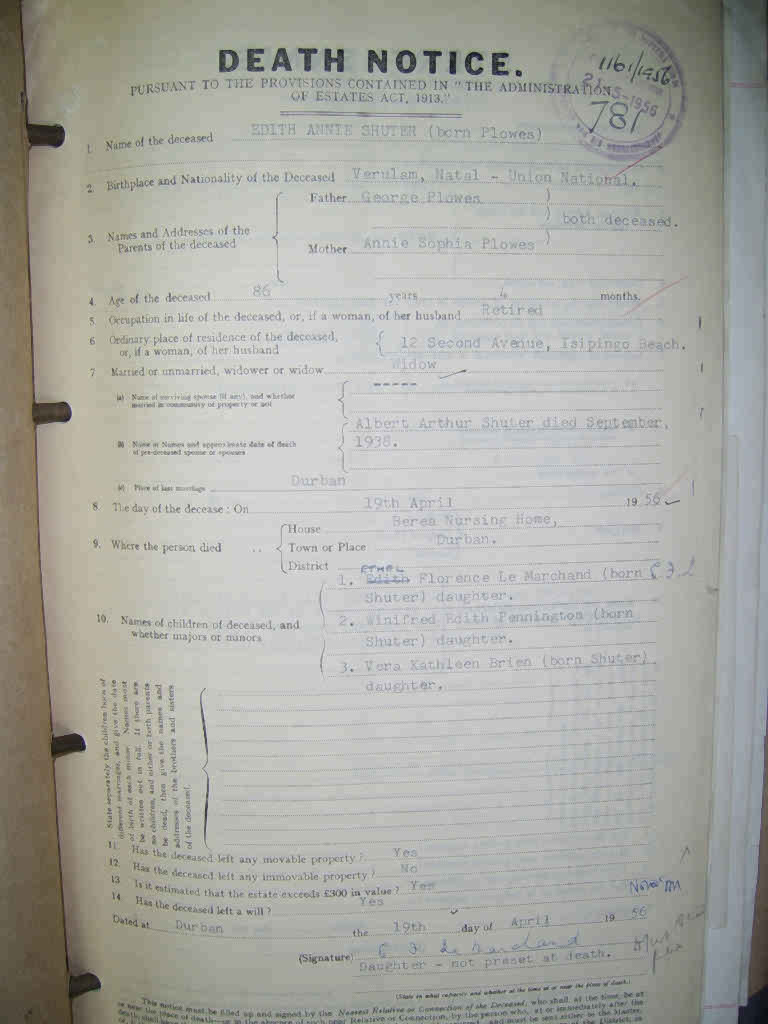 DEATH NOTICE.
1161/1956
781
PURSUANT TO THE PROVISIONS CONTAINED IN "THE ADMINISTRATION
OF ESTATES ACT, 1913."
1. Name of the deceased EDITH ANNIE SHUTER (born Plowes)
2. Birthplace and Nationality of the Deceased Verulam, Natal - Union National.
3. Names and Addresses of the Parents of the deceased
Father George Plowes
) both deceased.
Mother Annie Sophia Plowes
4. Age of the deceased 86 years 4 months.
5. Occupation in life of the deceased, or, if a woman, of her husband Retired
6 Ordinary place of residence of the deceased, or, if a woman, of her husband { 12 Second Avenue, Isipingo Beach.
7 Married or unmarried, widower or widow Widow
(a) Name of surviving spouse (if any), and whether married in community of property or not -----
(b) Name or Names and approximate date of death of pre-deceased spouse or spouses
Albert Arthur Shuter died September,
1938.
(c) Place of last marriage Durban
8 The day of the decease: On 19th April 1956
9. Where the person died ..
House Berea Nursing Home,
Town or Place Durban.
District
10. Names of children of deceased, and whether majors or minors
ETHEL
1. Edith Florence Le Marchand (born
Shuter) daughter.
2. Winifred Edith Pennington (born
Shuter) daughter.
3. Vera Kathleen Brien (born Shuter)
daughter.
State separately the children born of
different marriages, and give the date
of birth of each minor. Names must
be written out in full. If there are
no children, and either or both parents
be dead, then give the names and
addresses of the brothers and sisters
of the deceased.
11. Has the deceased left any movable property? Yes
12. Has the deceased left any immovable property? No
13 Is it estimated that the estate exceeds £300 in value? Yes
14. Has the deceased left a will? Yes
Dated at Durban the 19th day of April 1956
(Signature) E F Le Marchand
Daughter - not preset at death.
(State in what capacity and whether at the time at or near the place of death.)
This notice must be filled up and signed by the Nearest Relative or Connection of the Deceased, who shall at the time, be at
or near the place of death—or in the absence of such near Relative or Connection, by the person who, at or immediately after the